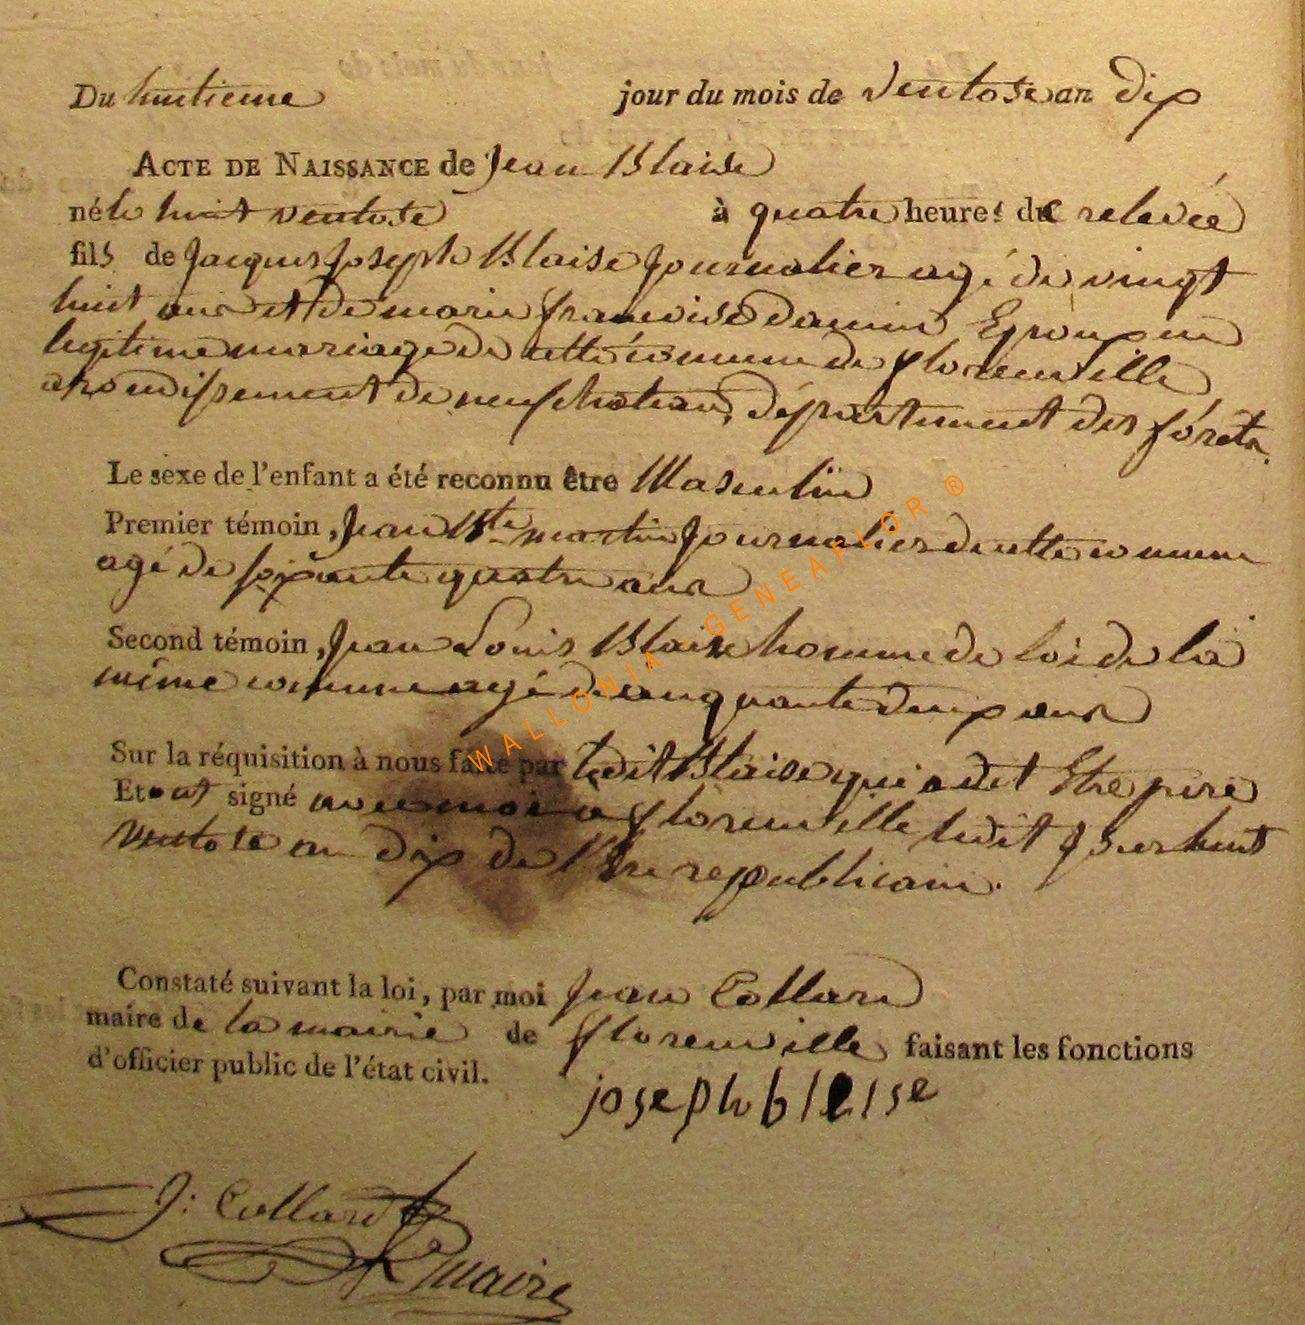 Du huitieme jour du mois de Ventose an dix
ACTE DE NAISSANCE de Jean Blaise
né le huit ventose à quatre heures de relevée
fils de Jacques Joseph Blaise Journalier agé de vingt
huit ans et de marie francoise Epoux en
legitime mariage de cette commune de florenville
arondissement de neufchateau, département des foréts.
Le sexe de l'enfant a été reconnu être Masculin
Premier témoin, Jean Bte martin Journalier de cette commune
agé de soixante quatre ans
Second témoin, Jean Louis Blaise homme de loi de la
même commune agé de cinquante deux ans
Sur la réquisition à nous faite par ledit Blaise qui a dit Etre pere
Et ont signé avec moi à florenville ledit Jour huit
ventose an dix de l'Ere republicaine.
Constaté suivant la loi, par moi Jean Collard
maire de la mairie de florenville faisant les fonctions
d'officier public de l'état civil.
joseph bleise
J: Collard
maire
WALLONIA GENEAFLOR ®